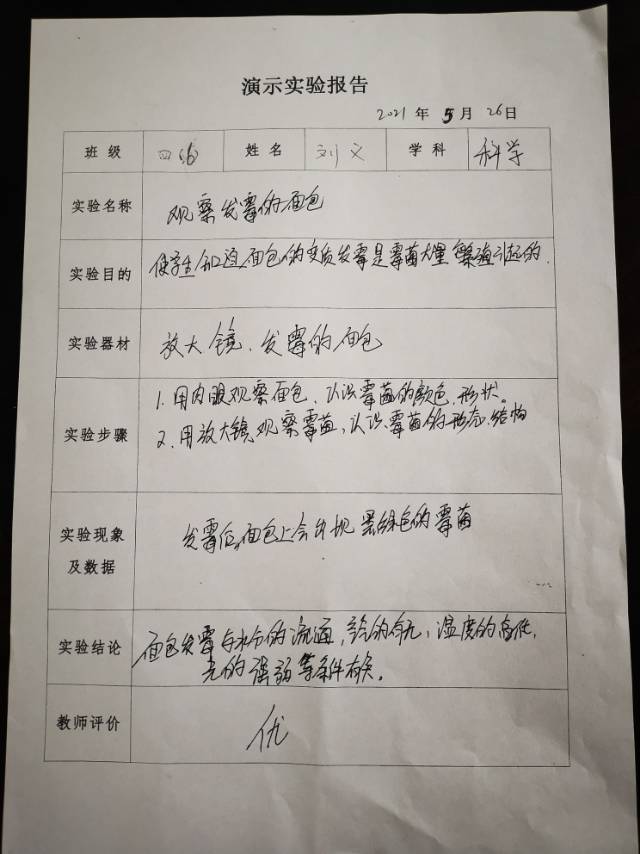 演示实验报告
2021 年 5 月 26日
班级 四 姓名 刘文 学科 科学
实验名称 观察发霉的面包
实验目的 使学生知道面包的变质发霉是霉菌大量繁殖引起的.
实验器材 放大镜、发霉的面包
1. 用肉眼观察面包、认识霉菌的颜色、形状。
实验步骤 2. 用放大镜观察霉菌,认识霉菌的形态、结构
实验现象 发霉后,面包上会出现黑绿色的霉菌
及数据
实验结论 面包发霉与水分的流通,的有无,温度的高低,
光的强弱等条件有关。
教师评价 优